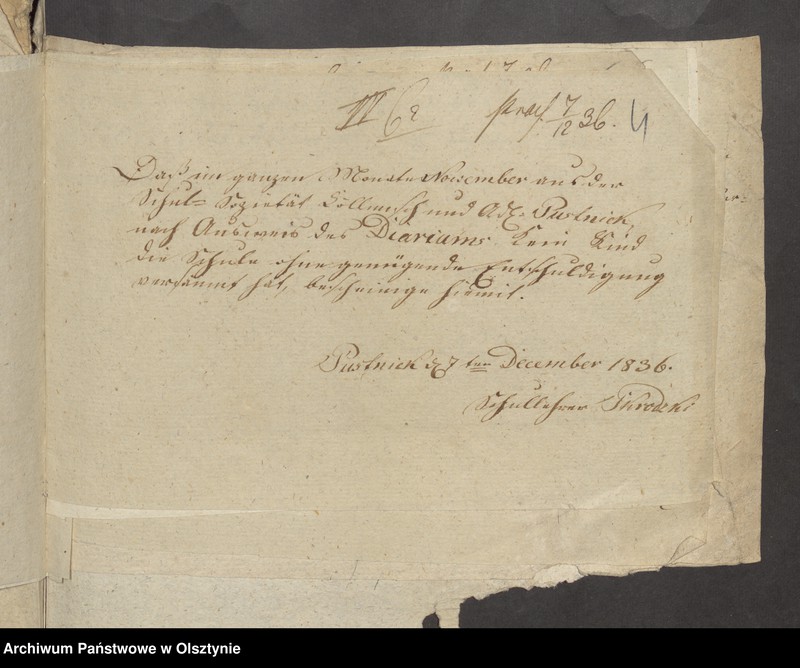 III 62 praes 7/12 36. 4
Daß im ganzen Monate November aus der
Schul- Sozietät Cöllmisch und Adl. Pustnick,
nach Ausweis des Diariums kein Kind
die Schule ohne genügende Entschuldigung
versäumt hat, bescheinige hiemit.
Pustnick d. 7 ten December 1836.
Schullehrer
Archiwum Państwowe w Olsztynie